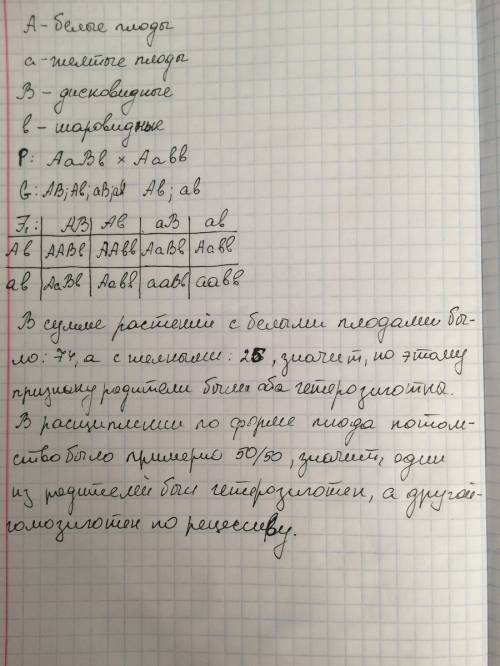 А - белые плоды
а - желтые плоды
В - дисковидные
в - шаровидные
Р: АаВв × Аавв
G: АВ; Ав; аВ; ав Ав; ав
F₁: АВ Ав аВ ав
Ав ААВв ААвв АаВв Аавв
ав АаВв Аавв ааВв аавв
В сумме растений с белыми плодами бы-
ло: 74, а с желтыми: 25, значит, по этому
признаку родители были оба гетерозиготны.
В расщиплении по форме плода потом-
ство было примерно 50/50, значит, один
из родителей был гетерозиготен, а другой-
гомозиготен по рецессиву.